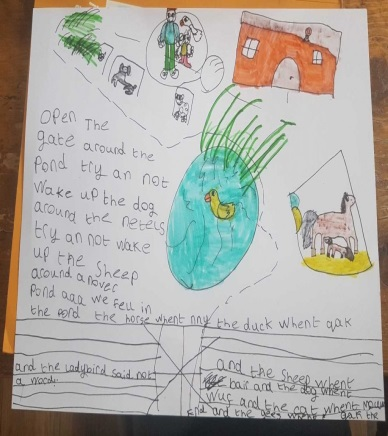 Open The
gate around the
Pond try an not
wake up the dog
around the netels
try an not wake
up the Sheep
around anover
Pond aaa we fell in
the Pond the horse whent nny the duck whent qak
and the Ladybird said not
a word.
and the Sheep whent
baa and the dog whent
wuf and the cat whent
End and the gees whent gak the